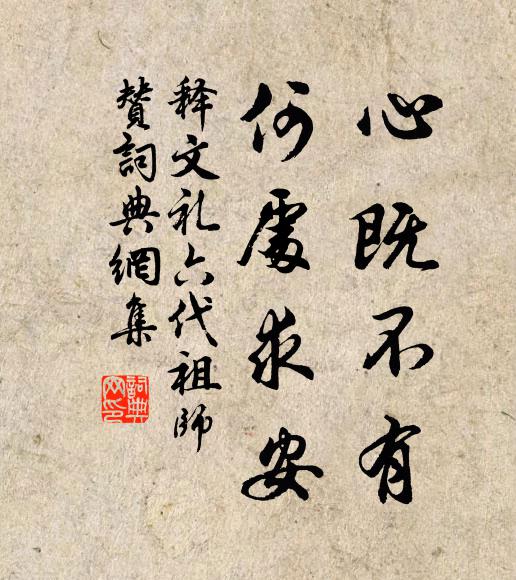 心既不有
何處求安
释文礼六代祖師
贊詞典網集
詞典
网印